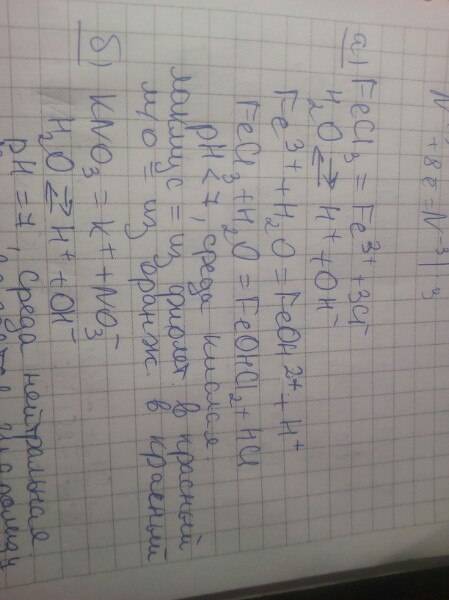 +8e = N⁻³| 3
а) FeCl₃ = Fe³⁺ + 3Cl⁻
H₂O ⇄ H⁺ + OH⁻
Fe³⁺ + H₂O = FeOH²⁺ + H⁺
FeCl₃ + H₂O = FeOHCl₂ + HCl
pH < 7, среда кислая
лакмус = из фиолет. в красный
м/о = из оранж в красный
б) KNO₃ = K⁺ + NO₃⁻
H₂O ⇄ H⁺ + OH⁻
pH = 7, среда нейтральная